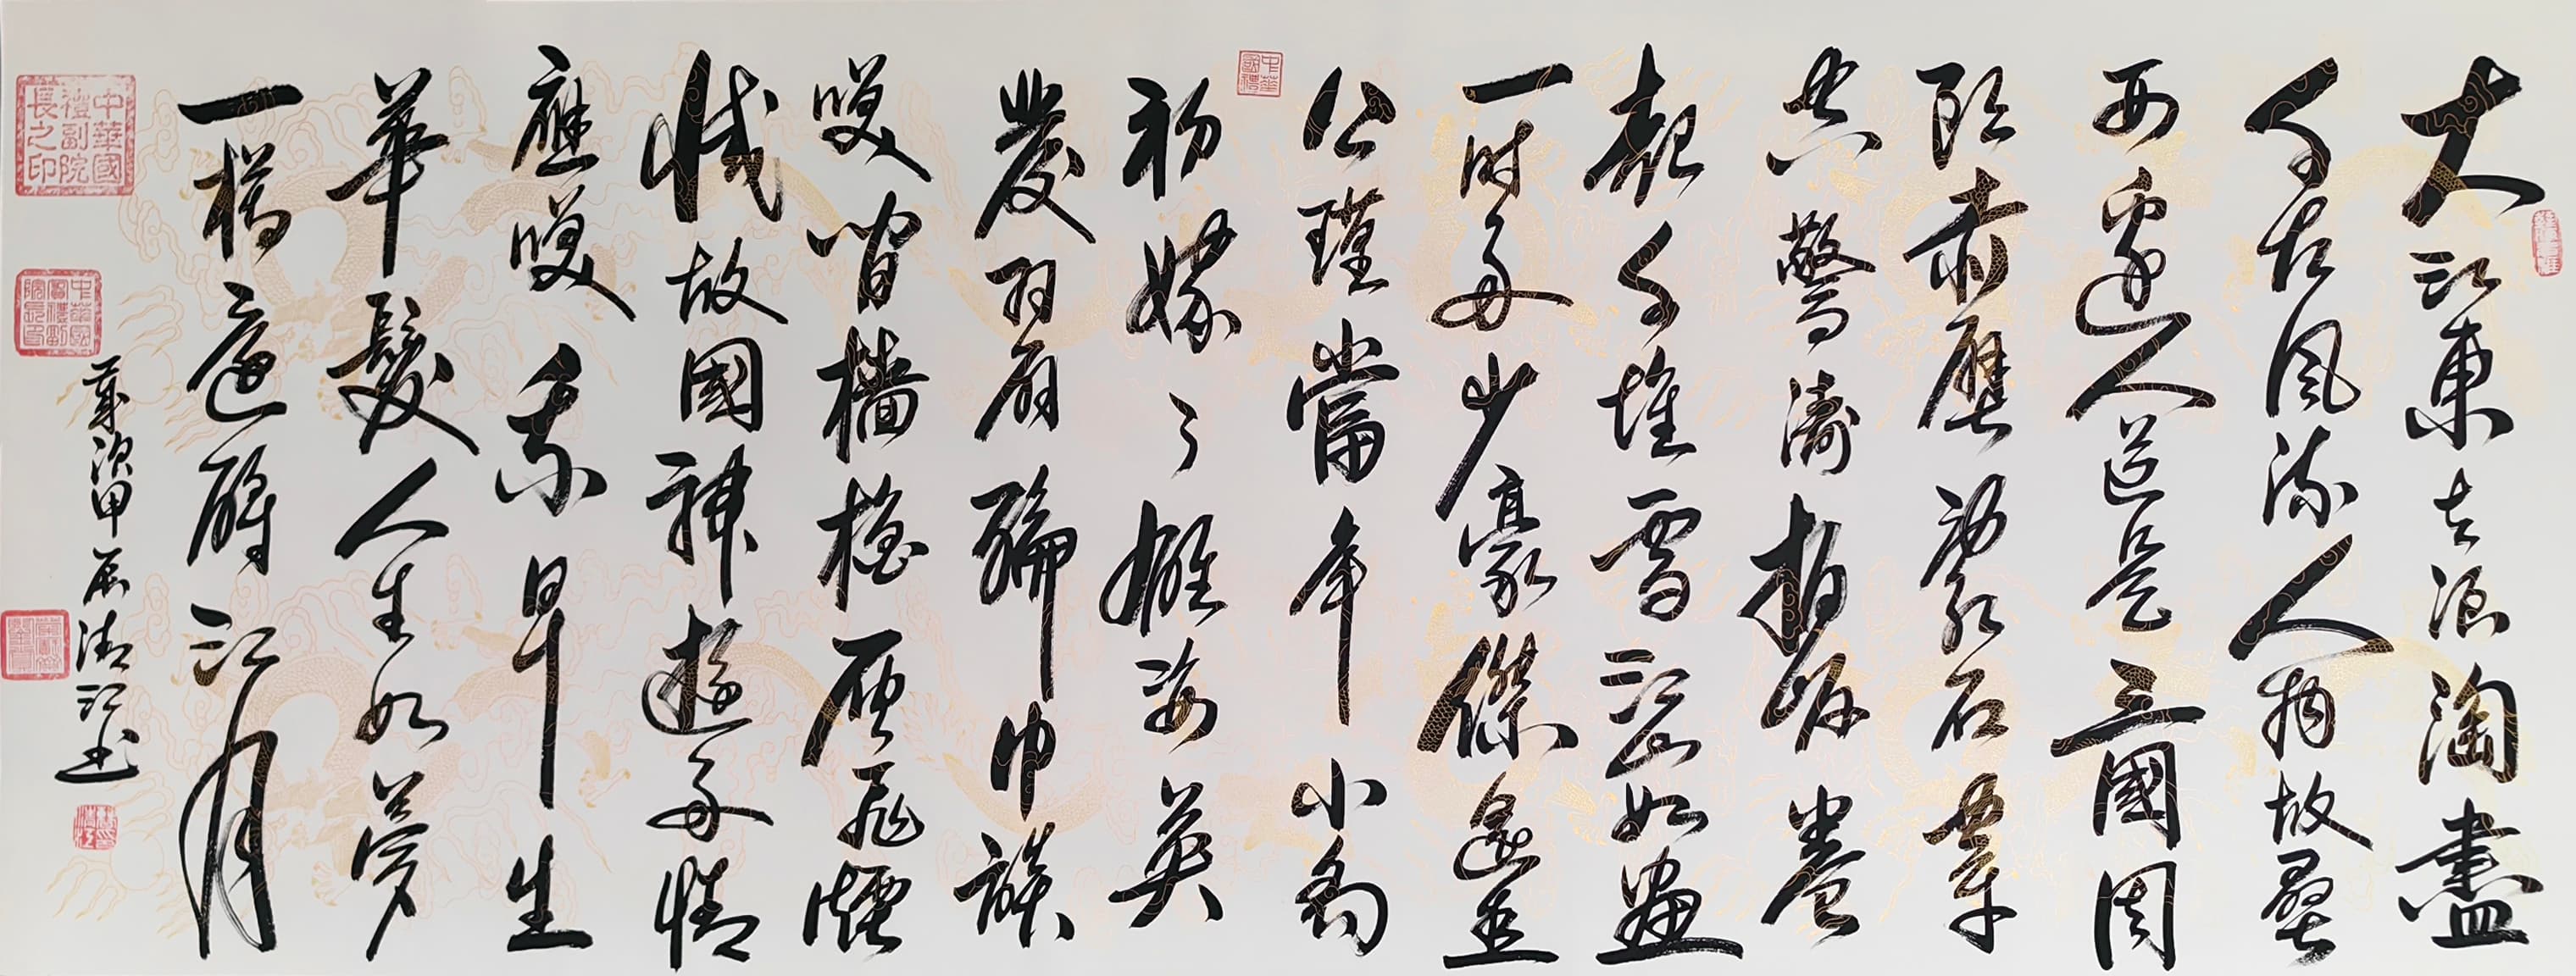 大江東去浪淘盡
千古風流人物故壘
西邊人道是三國周
郎赤壁亂石穿
空驚濤拍岸卷
起千堆雪江山如畫
一時多少豪傑遙想
公瑾當年小喬
初嫁了雄姿英
發羽扇綸巾談
笑間檣櫓灰飛煙
滅故國神遊多情
應笑我早生
華髮人生如夢
一樽還酹江月
歲次甲辰清江書
中華國禮
中華國禮副院長之印
中華國禮副院長印